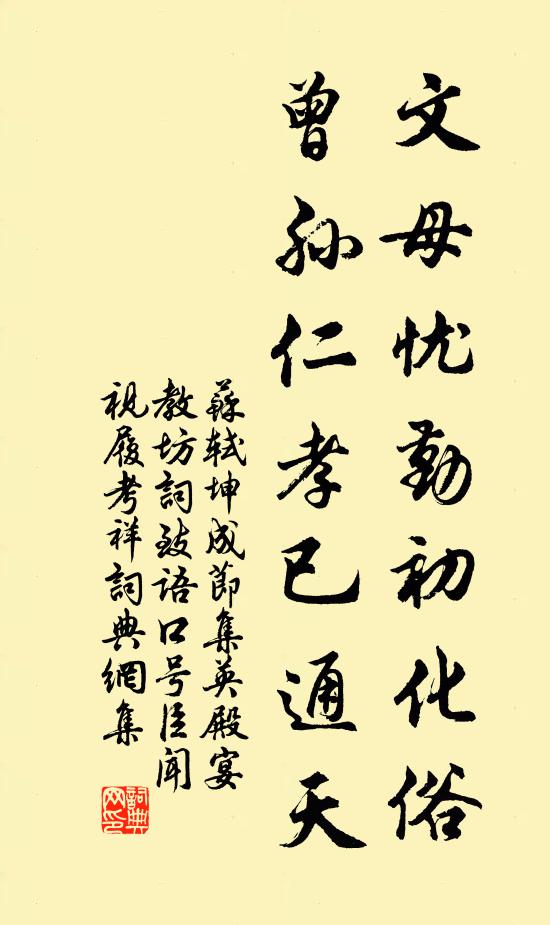 文母忧勤初化俗
曾孙仁孝已通天
蘇軾坤成節集英殿宴
教坊詞致语口号臣闻
視履考祥詞典網集
詞典网印